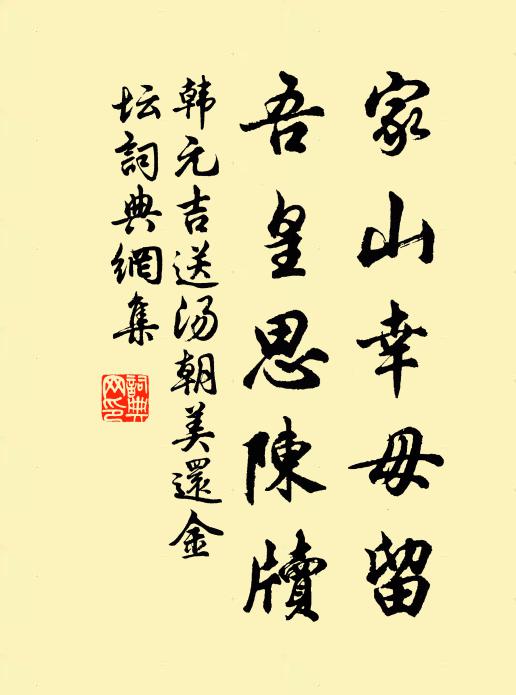 家山幸毋留
吾皇思陳牘
韩元吉送汤朝美還金
坛詞典網集
詞典
网印